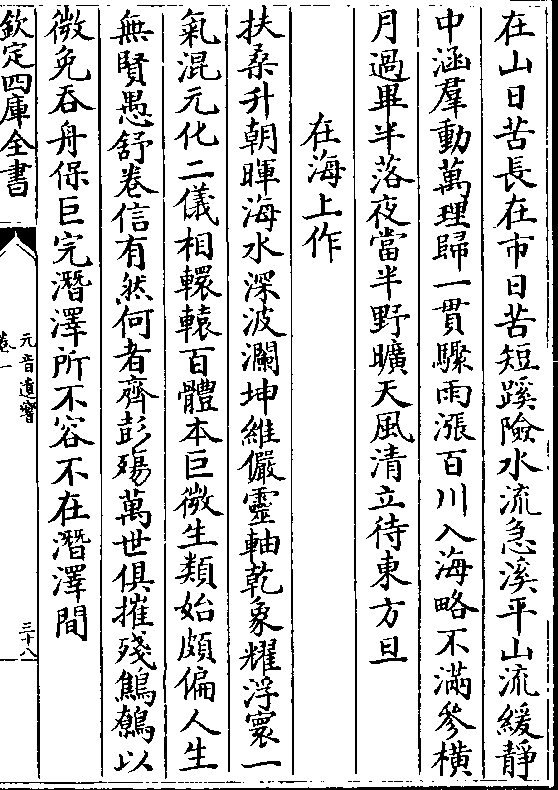 在山日苦長在市日苦短蹊險水流急溪平山流緩靜
中涵羣動萬理歸一貫驟雨漲百川入海略不滿參橫
月過畢半落夜當半野曠天風清立待東方旦
在海上作
扶桑升朝暉海水深波瀾坤維儼靈軸乾象耀浮寰一
氣混元化二儀相轘轅百體本巨微生類始頗偏人生
無賢愚舒卷信有然何者齊彭殤萬世俱摧殘鷦鷯以
微免吞舟保巨完潛澤所不容不在潛澤間
欽定四庫全書
元音遺響
卷一
三十八